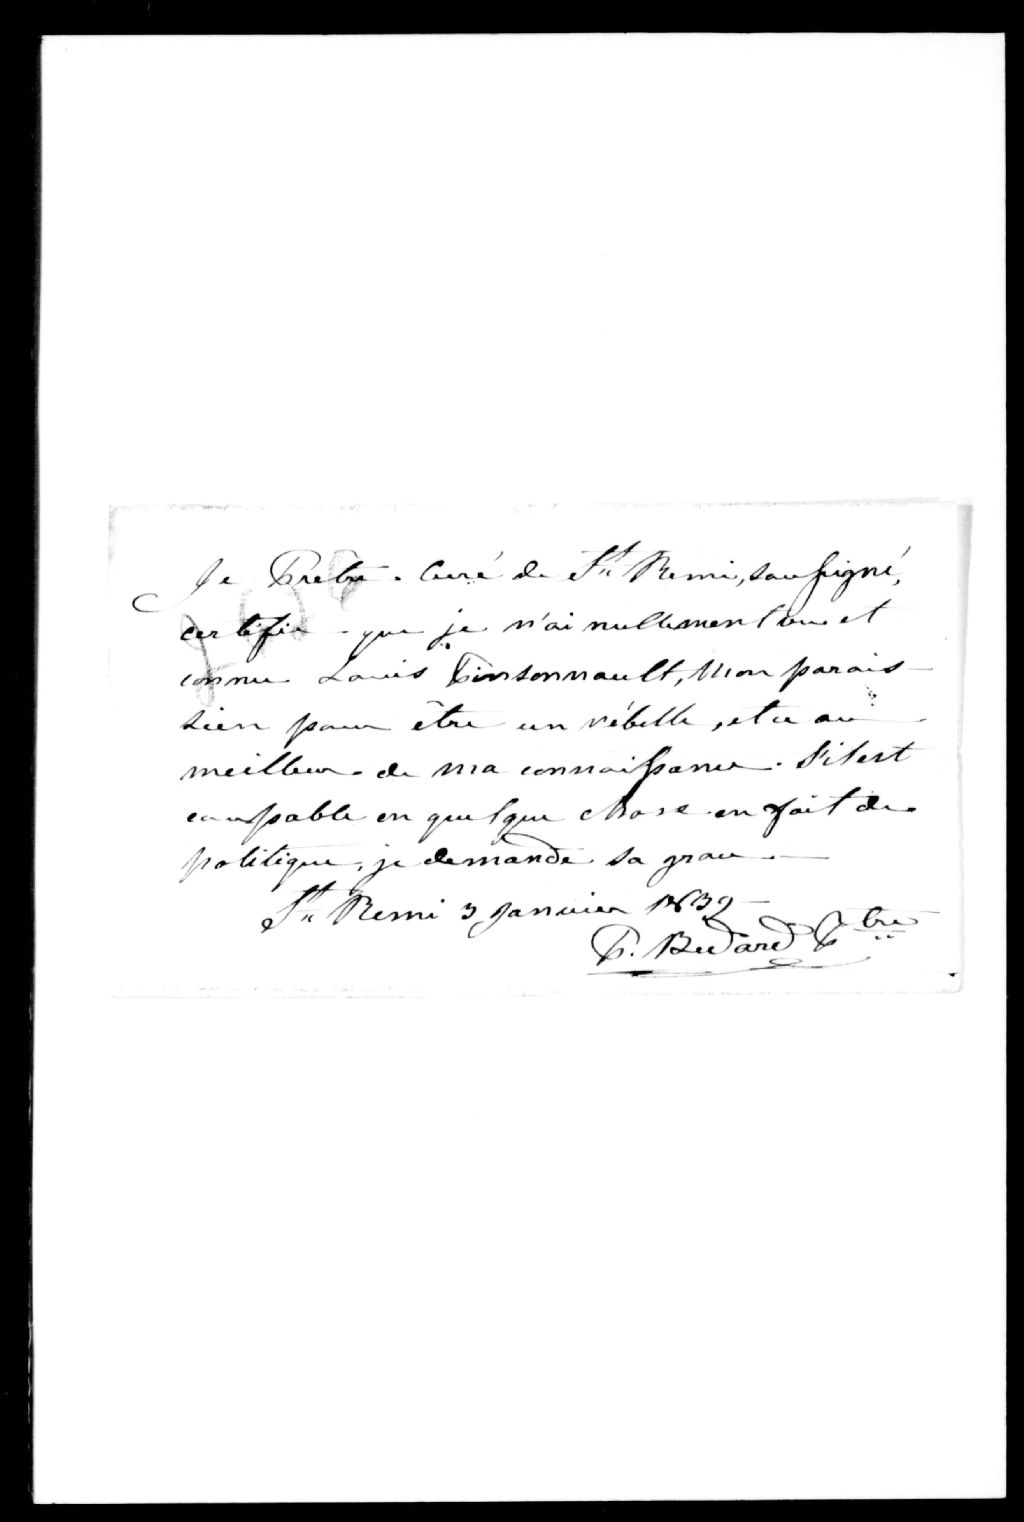 Je Prêtre Curé de St Remi, soussigné,
certifie que je n'ai nullement vu et
connu Louis Pinsonnault, Mon parois-
sien pour être un rébelle, et ce au
meilleur de ma connaissance. S'il est
coupable en quelque chose en fait de
politique, je demande sa grace.
St Remi 3 Janvier 1839
P. Bedard Ptre